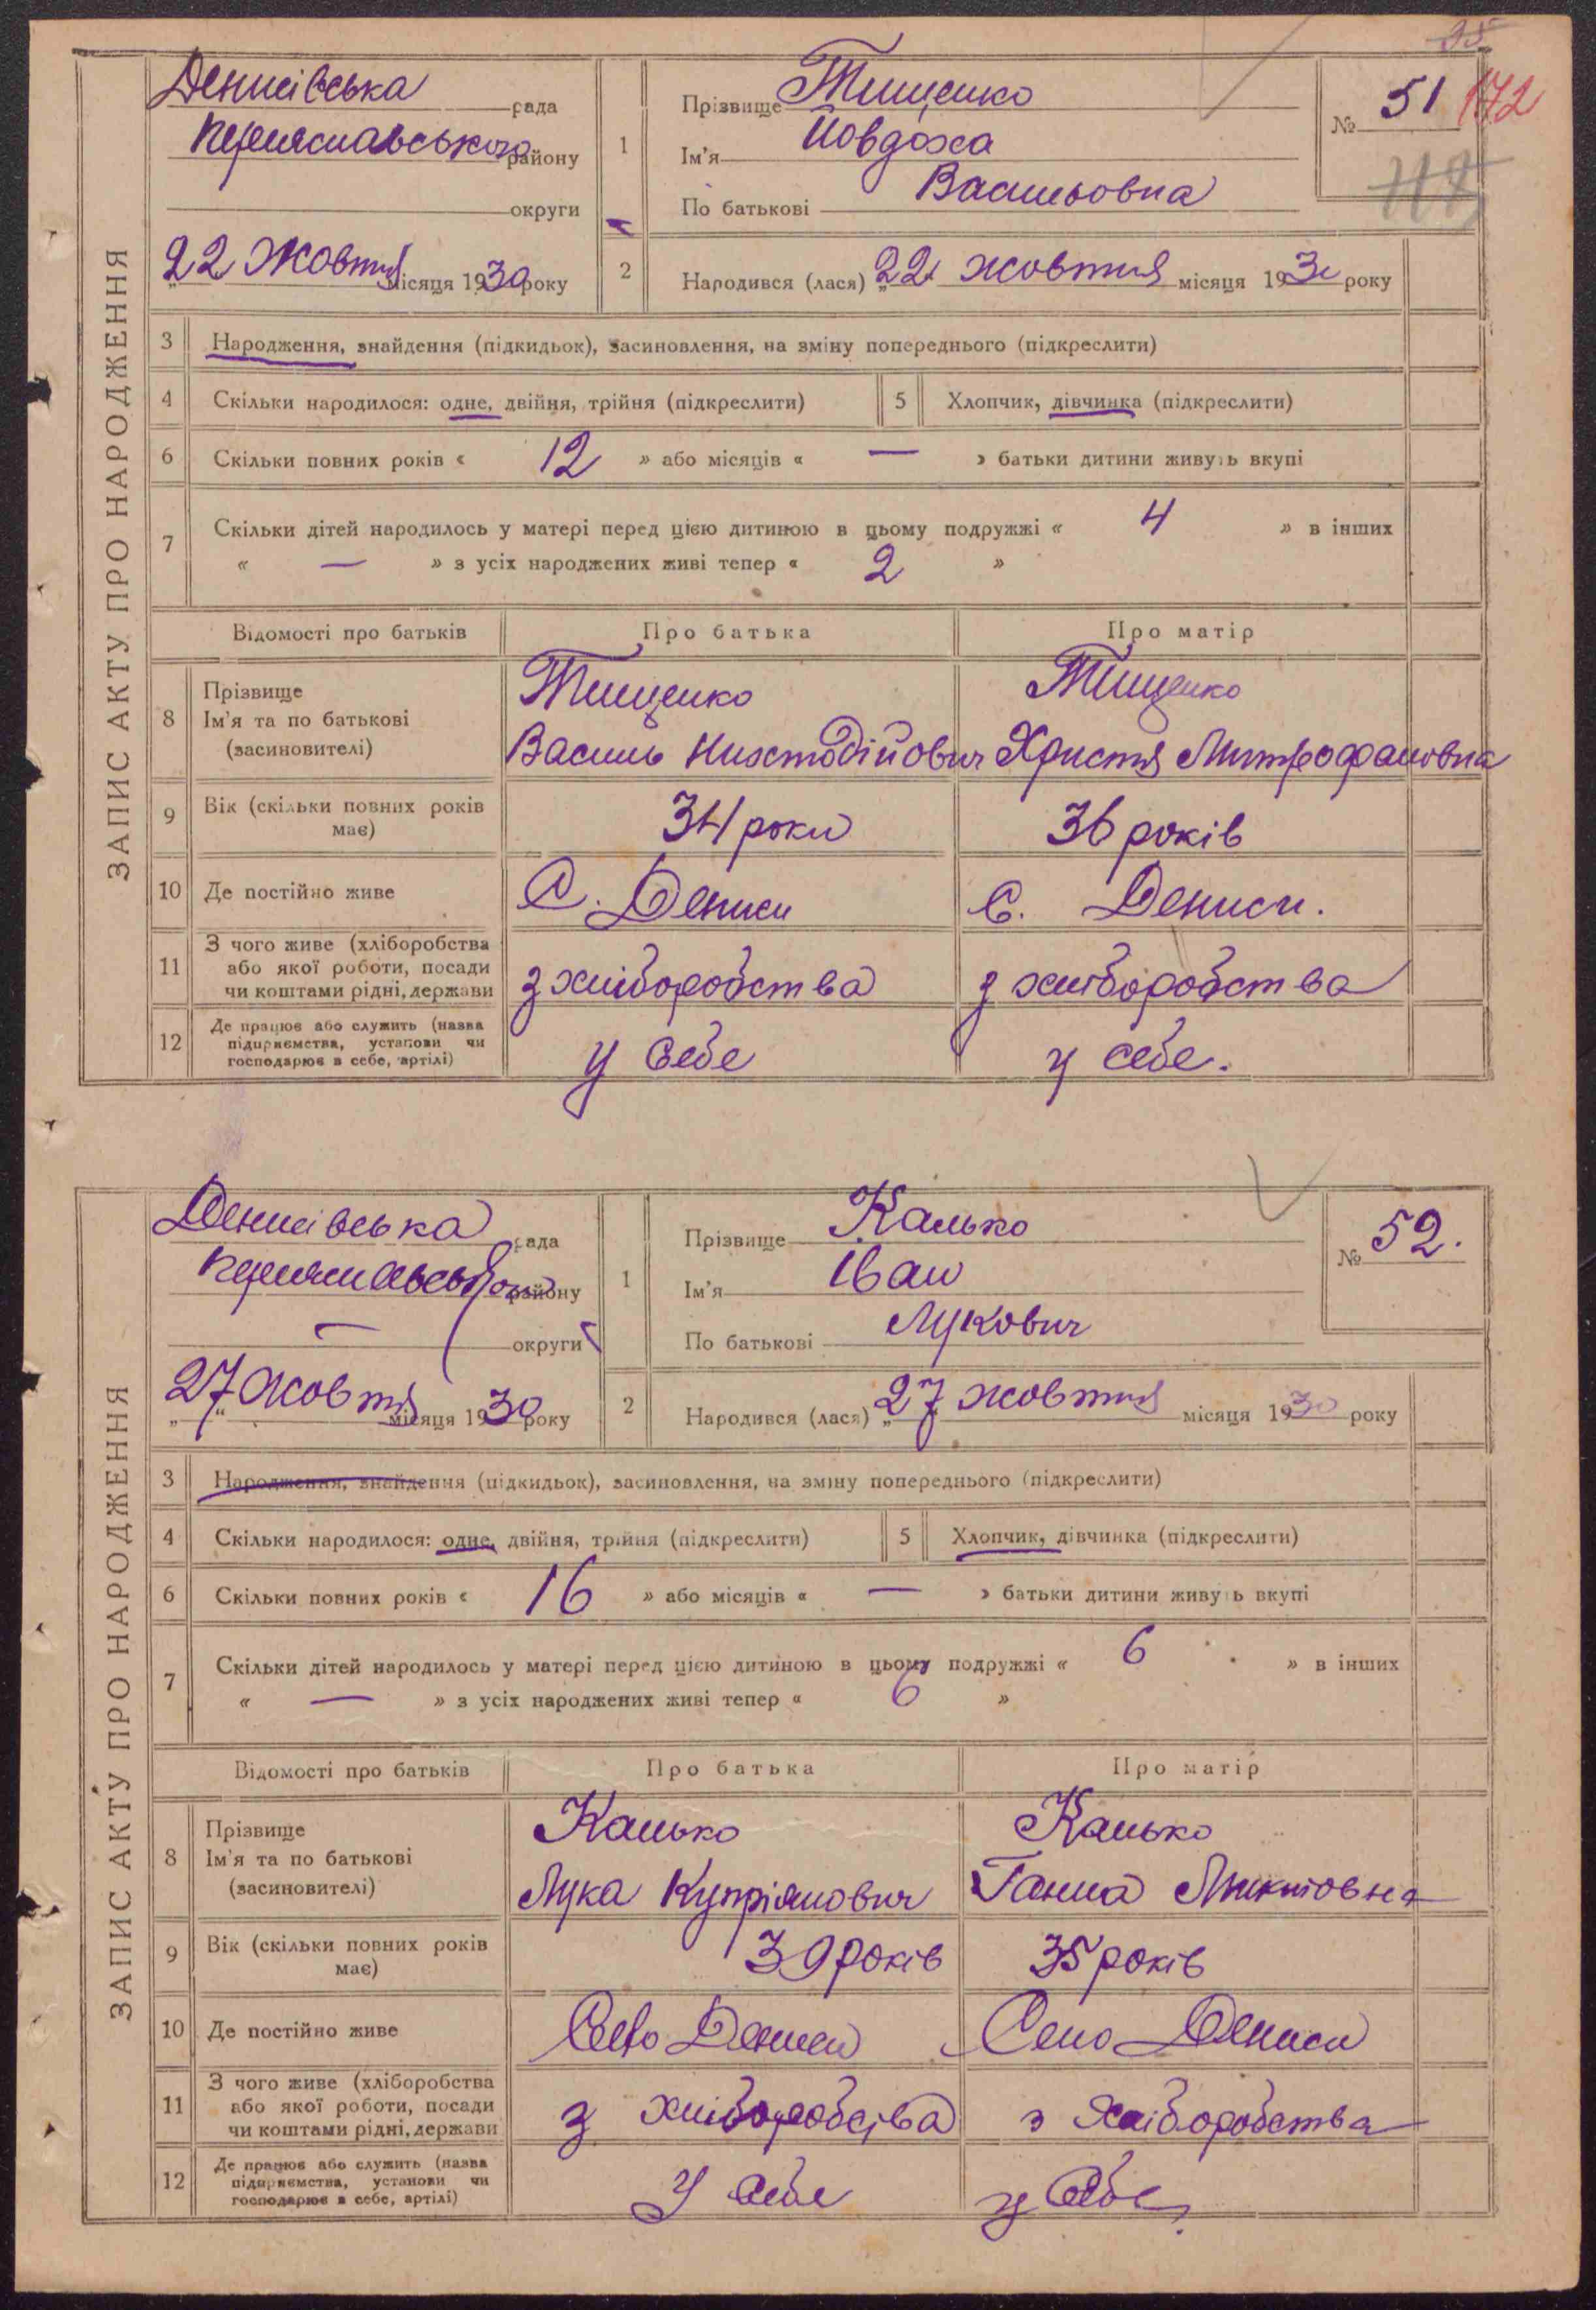 95
ЗАПИС АКТУ ПРО НАРОДЖЕННЯ
Денисівська рада
Переяславського району
округи
22 Жовтня місяця 1930 року
1
Прізвище Тищенко
Ім'я Йовдоха
По батькові Васильовна
№ 51
172
117
2 Народився (лася) „22 жовтня місяця 1930 року
3 Народження, знайдення (підкидьок), засиновлення, на зміну попереднього (підкреслити)
4 Скільки народилося: одне, двійня, трійня (підкреслити) 5 Хлопчик, дівчинка (підкреслити)
6 Скільки повних років « 12 » або місяців « — » батьки дитини живуть вкупі
7 Скільки дітей народилось у матері перед цією дитиною в цьому подружжі « 4 » в інших
« — » з усіх народжених живі тепер « 2 »
Відомості про батьків Про батька Про матір
8 Прізвище Ім'я та по батькові (засиновителі)
Тищенко Тищенко
Василь Христя Митрофановна
9 Вік (скільки повних років має) 34 роки 36 років
10 Де постійно живе С. Дениси с. Дениси.
11 З чого живе (хліборобства або якої роботи, посади чи коштами рідні, держави з хліборобства з хліборобства
12 Де працює або служить (назва підприємства, установи чи господарює в себе, артілі) у себе у себе.
ЗАПИС АКТУ ПРО НАРОДЖЕННЯ
Денисівська рада
Переяславського району
— округи
„27“ Жовтня місяця 1930 року
1
Прізвище Калько
Ім'я Іван
По батькові Лукович
№ 52.
2 Народився (лася) „27 жовтня місяця 1930 року
3 Народження, знайдення (підкидьок), засиновлення, на зміну попереднього (підкреслити)
4 Скільки народилося: одне, двійня, трійня (підкреслити) 5 Хлопчик, дівчинка (підкреслити)
6 Скільки повних років « 16 » або місяців « — » батьки дитини живуть вкупі
7 Скільки дітей народилось у матері перед цією дитиною в цьому подружжі « 6 » в інших
« — » з усіх народжених живі тепер « 6 »
Відомості про батьків Про батька Про матір
8 Прізвище Ім'я та по батькові (засиновителі)
Калько Калько
Лука Купріянович Ганна Микитовна
9 Вік (скільки повних років має) 39 років 35 років
10 Де постійно живе Село Дениси Село Дениси
11 З чого живе (хліборобства або якої роботи, посади чи коштами рідні, держави з хліборобства з хліборобства
12 Де працює або служить (назва підприємства, установи чи господарює в себе, артілі) У себе у себе.